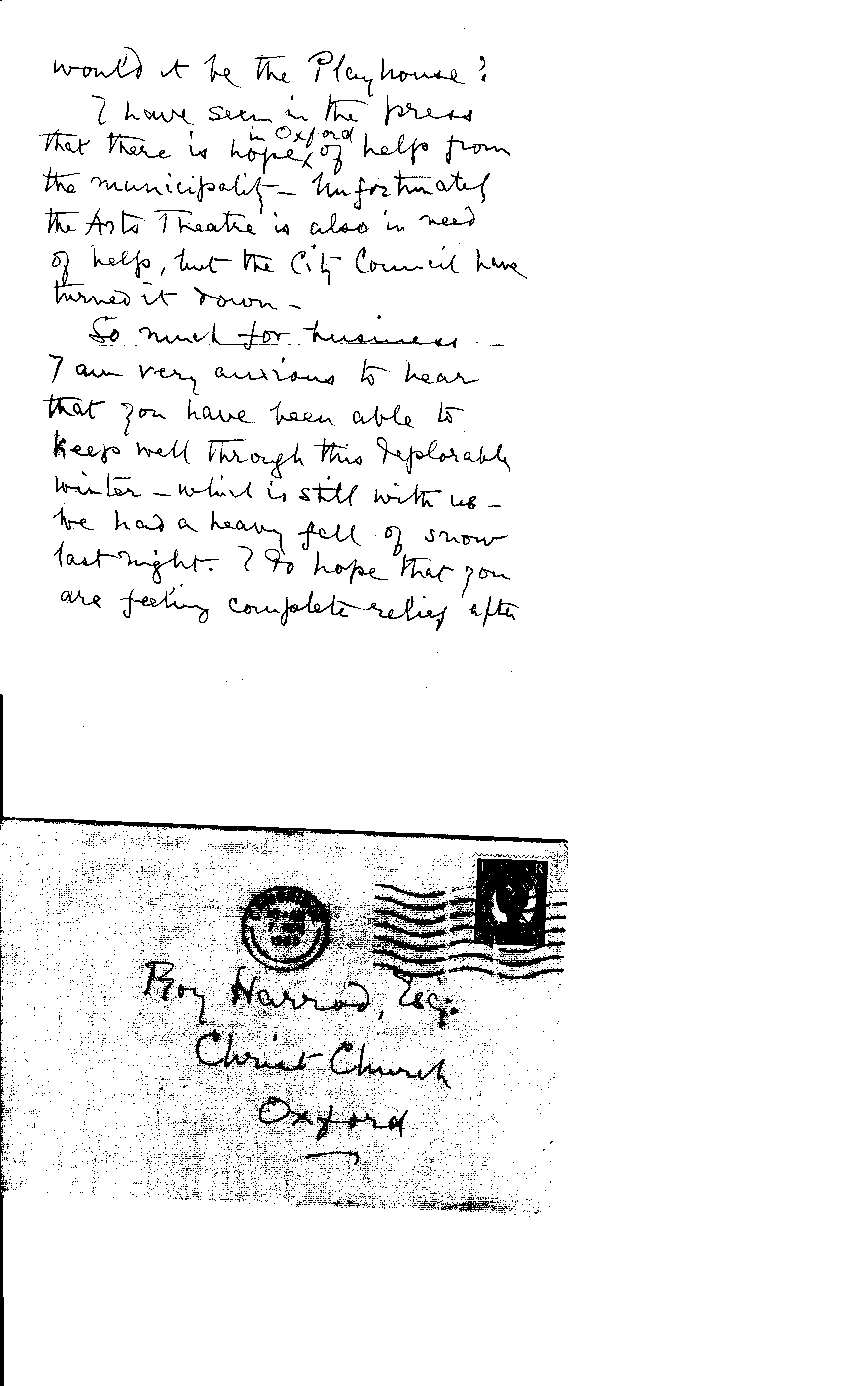 would it be the Playhouse?
I have seen in the press
in Oxford
that there is hope of help from
the municipality – Unfortunately
the Arts Theatre is also in need
of help, but the City Council have
turned it down –
So much for business –
I am very anxious to hear
that you have been able to
keep well through this deplorable
winter – which is still with us –
We had a heavy fall of snow
last night. I do hope that you
are feeling complete relief after
Roy Harrod, Esq.
Christ Church
Oxford